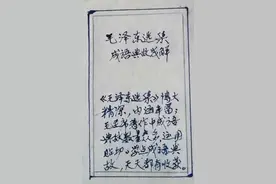 毛泽东选集
成语典故成解
《毛泽东选集》博大
精深，内涵丰富；
毛主席著作中成语
典故数量众多，运用
贴切。常点成语典
故，天天都有收获。